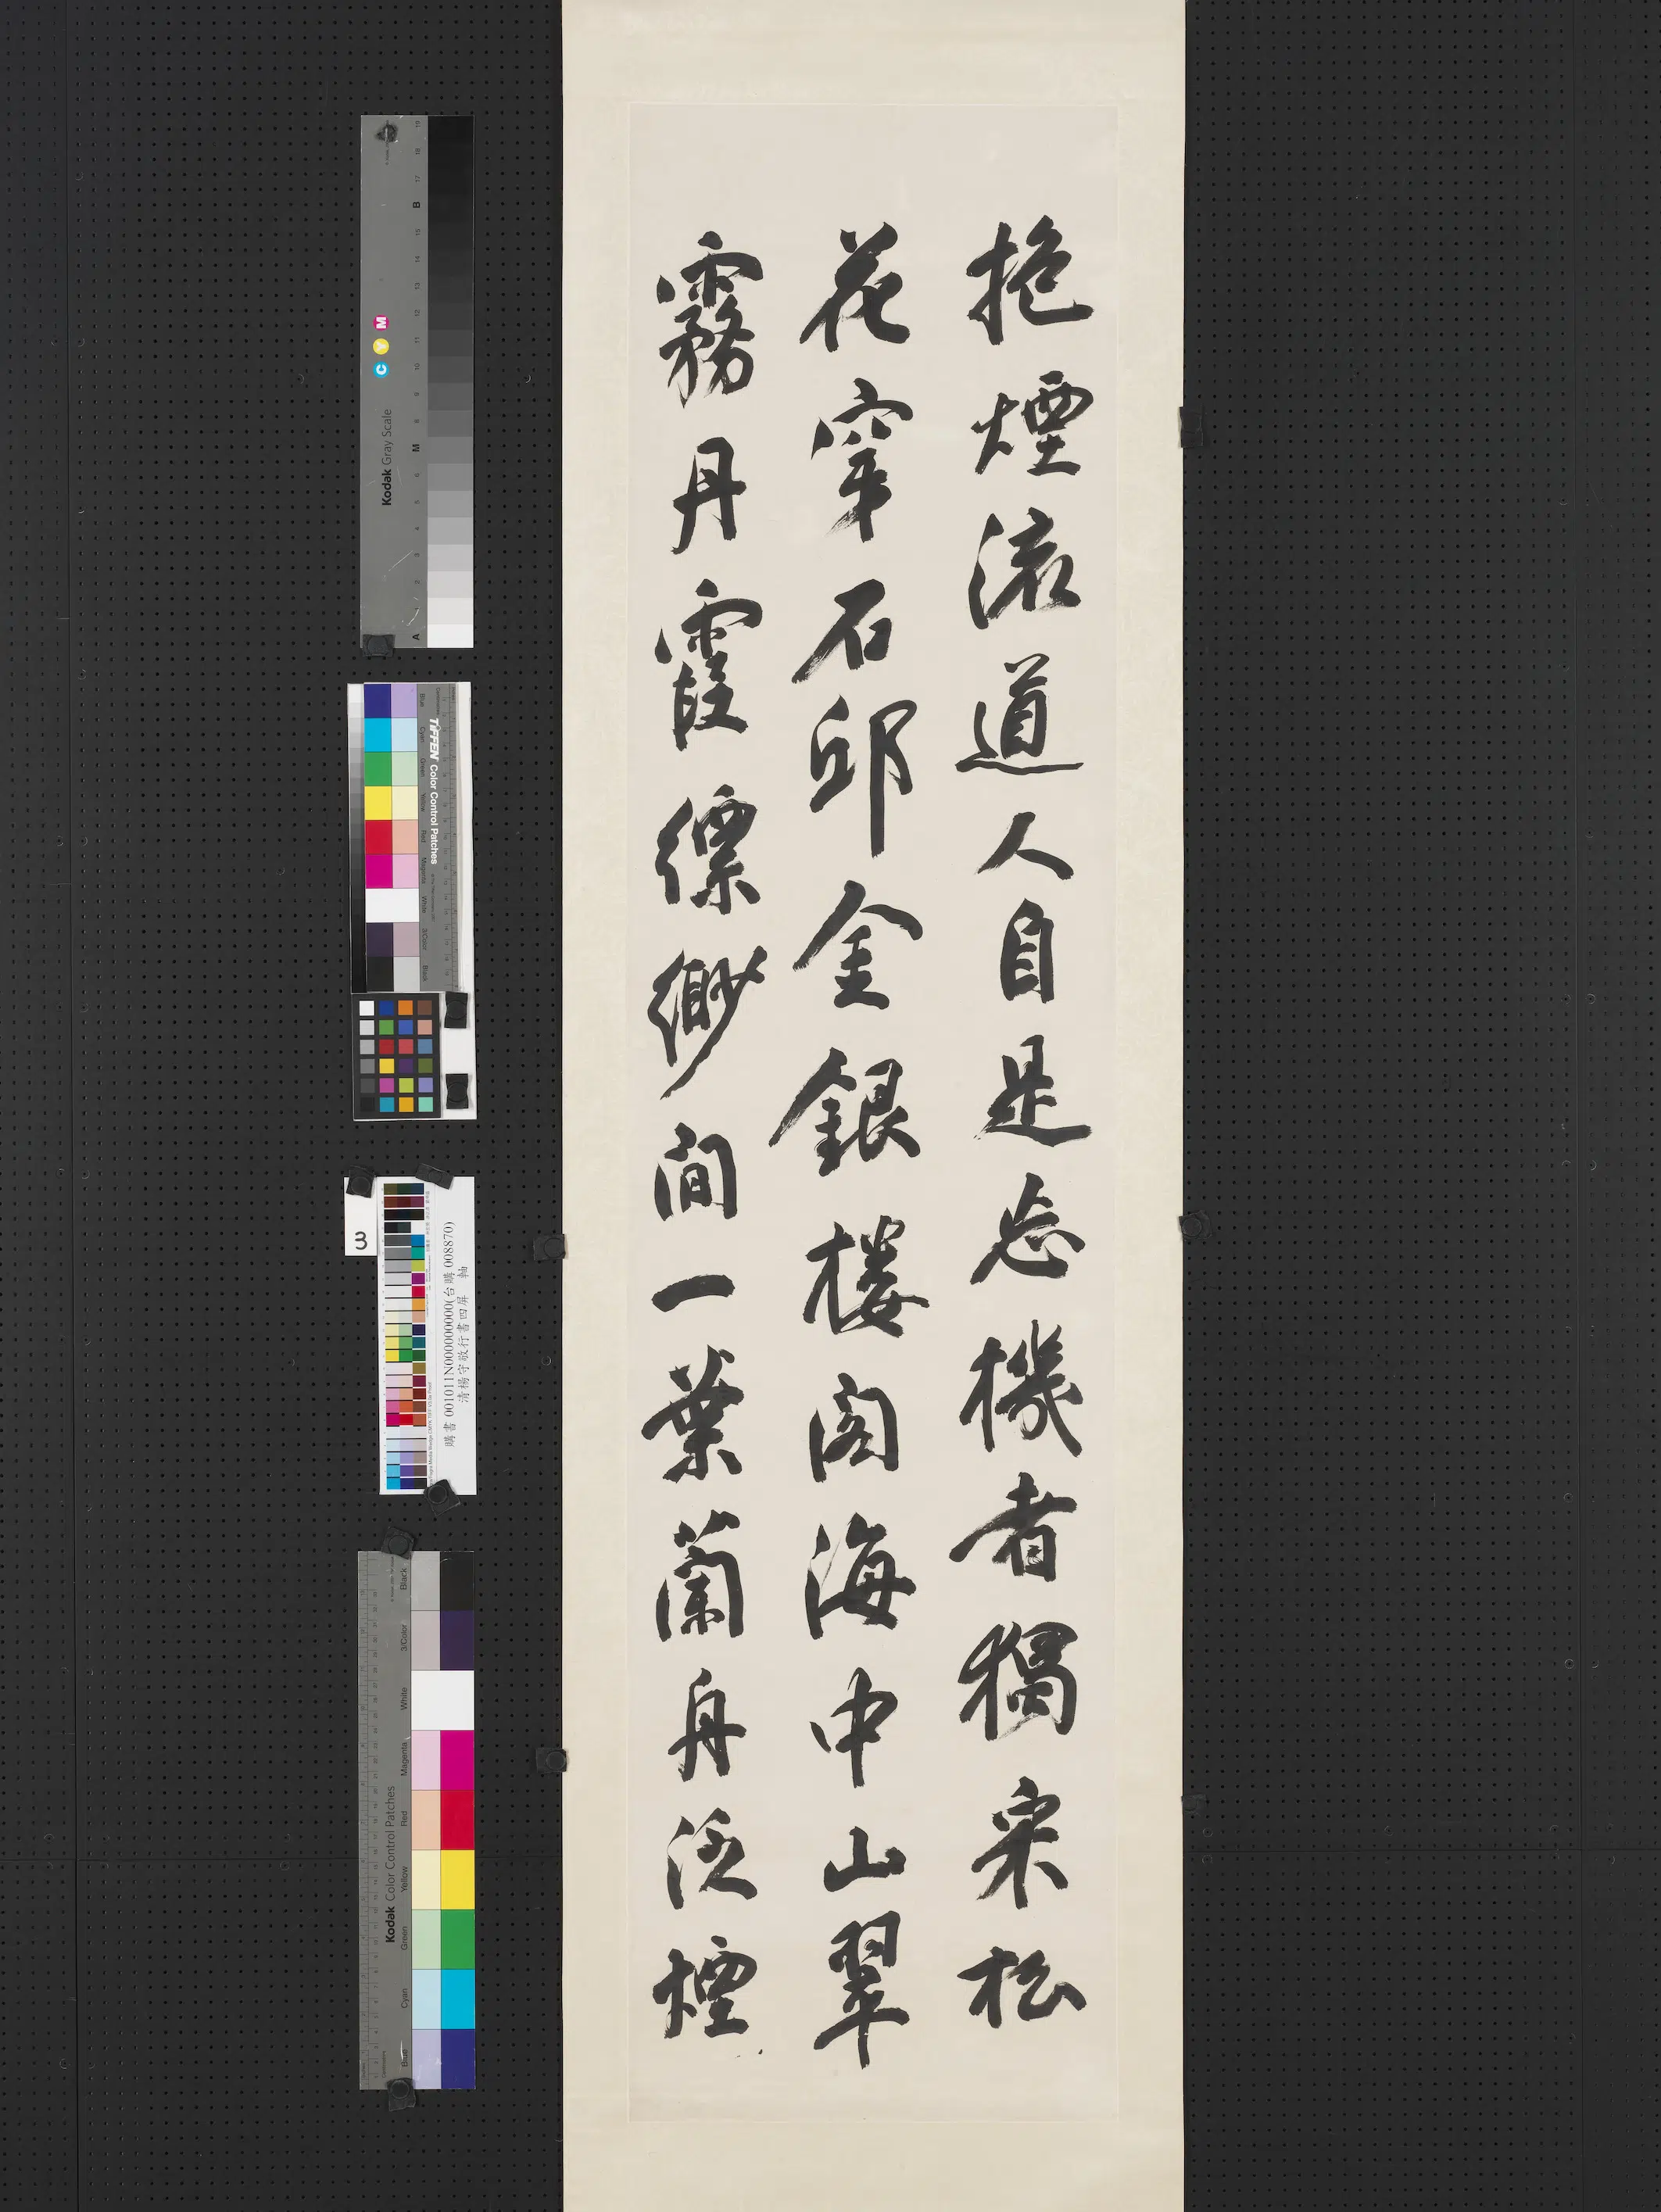 抱煙流道人自是忘機者獨采松
花穿石邱金銀樓閣海中山翠
霧丹霞縹緲間一葉蘭舟泛煙
Kodak Gray Scale
C Y M
A 1 2 3 4 5 6 M 8 9 10 11 12 13 14 15 B 17 18 19
TIFFEN Color Control Patches
Blue Cyan Green Yellow Red Magenta White 3/Color Black
3
購書 001011N000000000(台購 008870)
清楊守敬行書四屏 軸
Kodak Color Control Patches
Blue Cyan Green Yellow Red Magenta White 3/Color Black